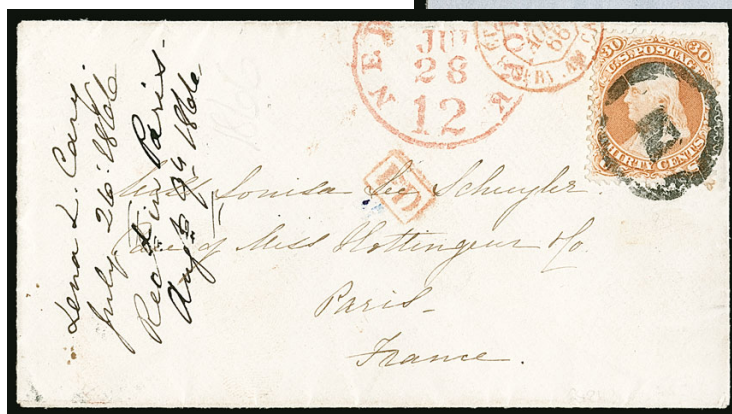 Lena L. Cary.
July 26. 1866
Rec'd in Paris.
Aug 1866
NEW YORK
JUL
28
12
30 U.S. POSTAGE 30
THIRTY CENTS
PD
Miss Louisa Lee Schuyler
Care of Mess Hottinguer & Co.
Paris
France.